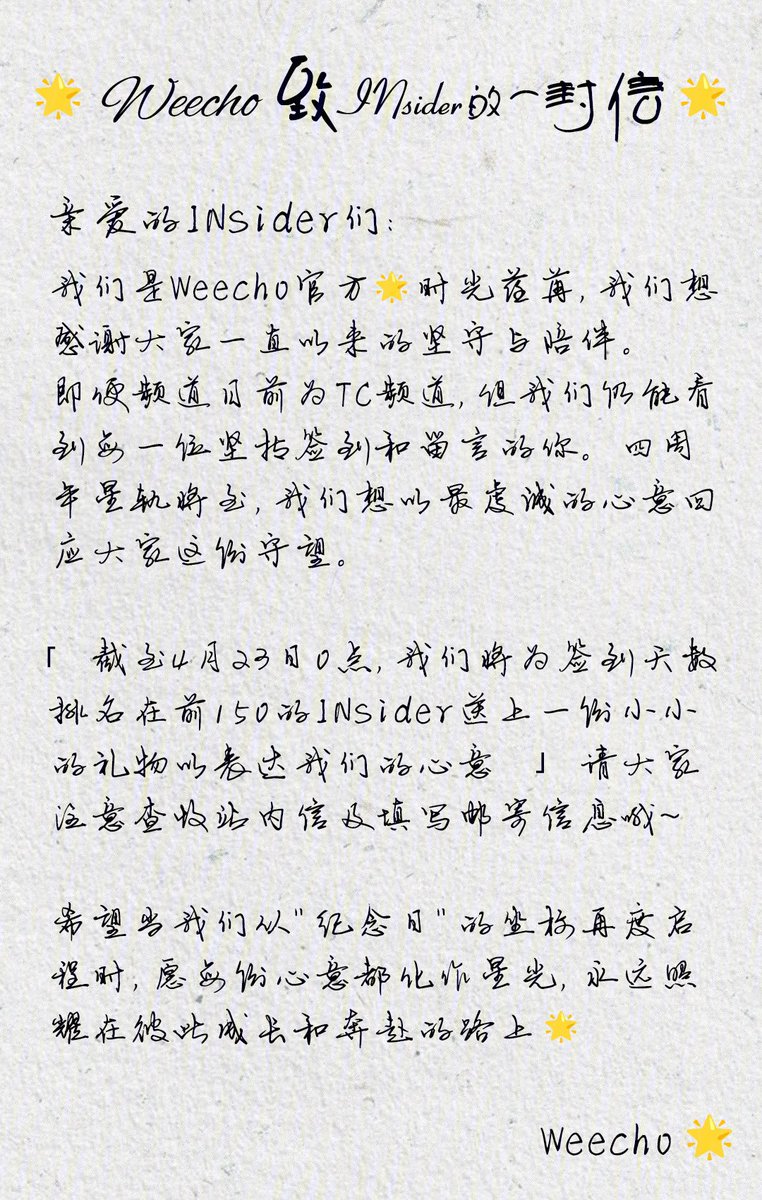 🌟 Weecho 致 INsider的一封信 🌟
亲爱的INsider们：
我们是Weecho官方🌟时光荏苒，我们想
感谢大家一直以来的坚守与陪伴。
即便频道目前为TC频道，但我们仍能看
到每一位坚持签到和留言的你。四周
年星轨将至，我们想以最虔诚的心意回
应大家这份守望。
「 截至4月23日0点，我们将为签到天数
排名在前150的INsider送上一份小小
的礼物以表达我们的心意 」 请大家
注意查收站内信及填写邮寄信息哦~
希望当我们从"纪念日"的坐标再度启
程时，愿每份心意都化作星光，永远照
耀在彼此成长和奔赴的路上🌟
Weecho 🌟